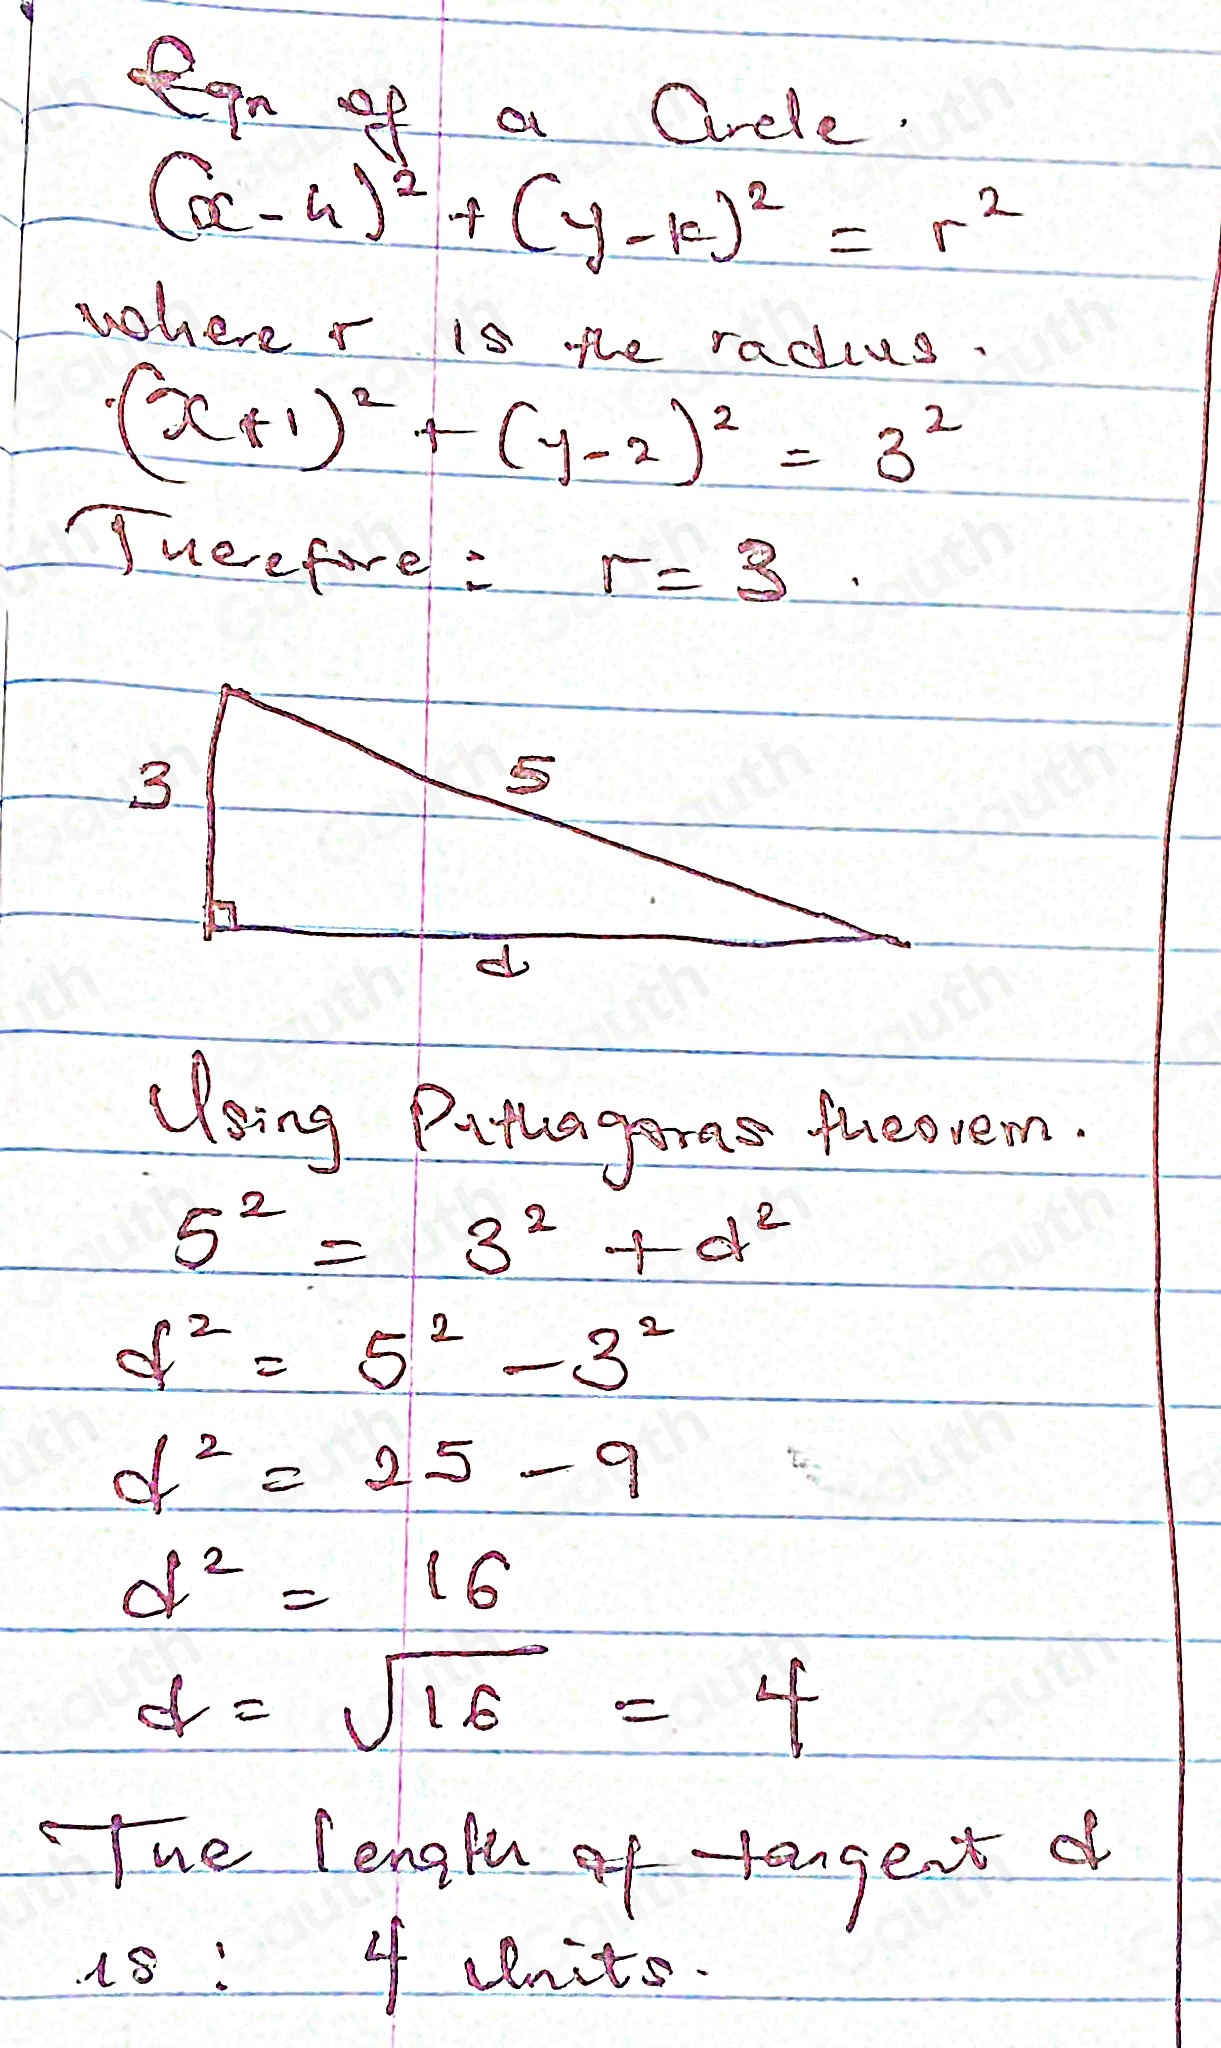 Eqn of a Circle.
(x-h)² + (y-k)² = r²
where r is the radius.
(x+1)² + (y-2)² = 3²
Therefore: r = 3.
3
5
d
Using Pythagoras theorem.
5² = 3² + d²
d² = 5² - 3²
d² = 25 - 9
d² = 16
d = √16 = 4
The length of tangent d
is: 4 units.